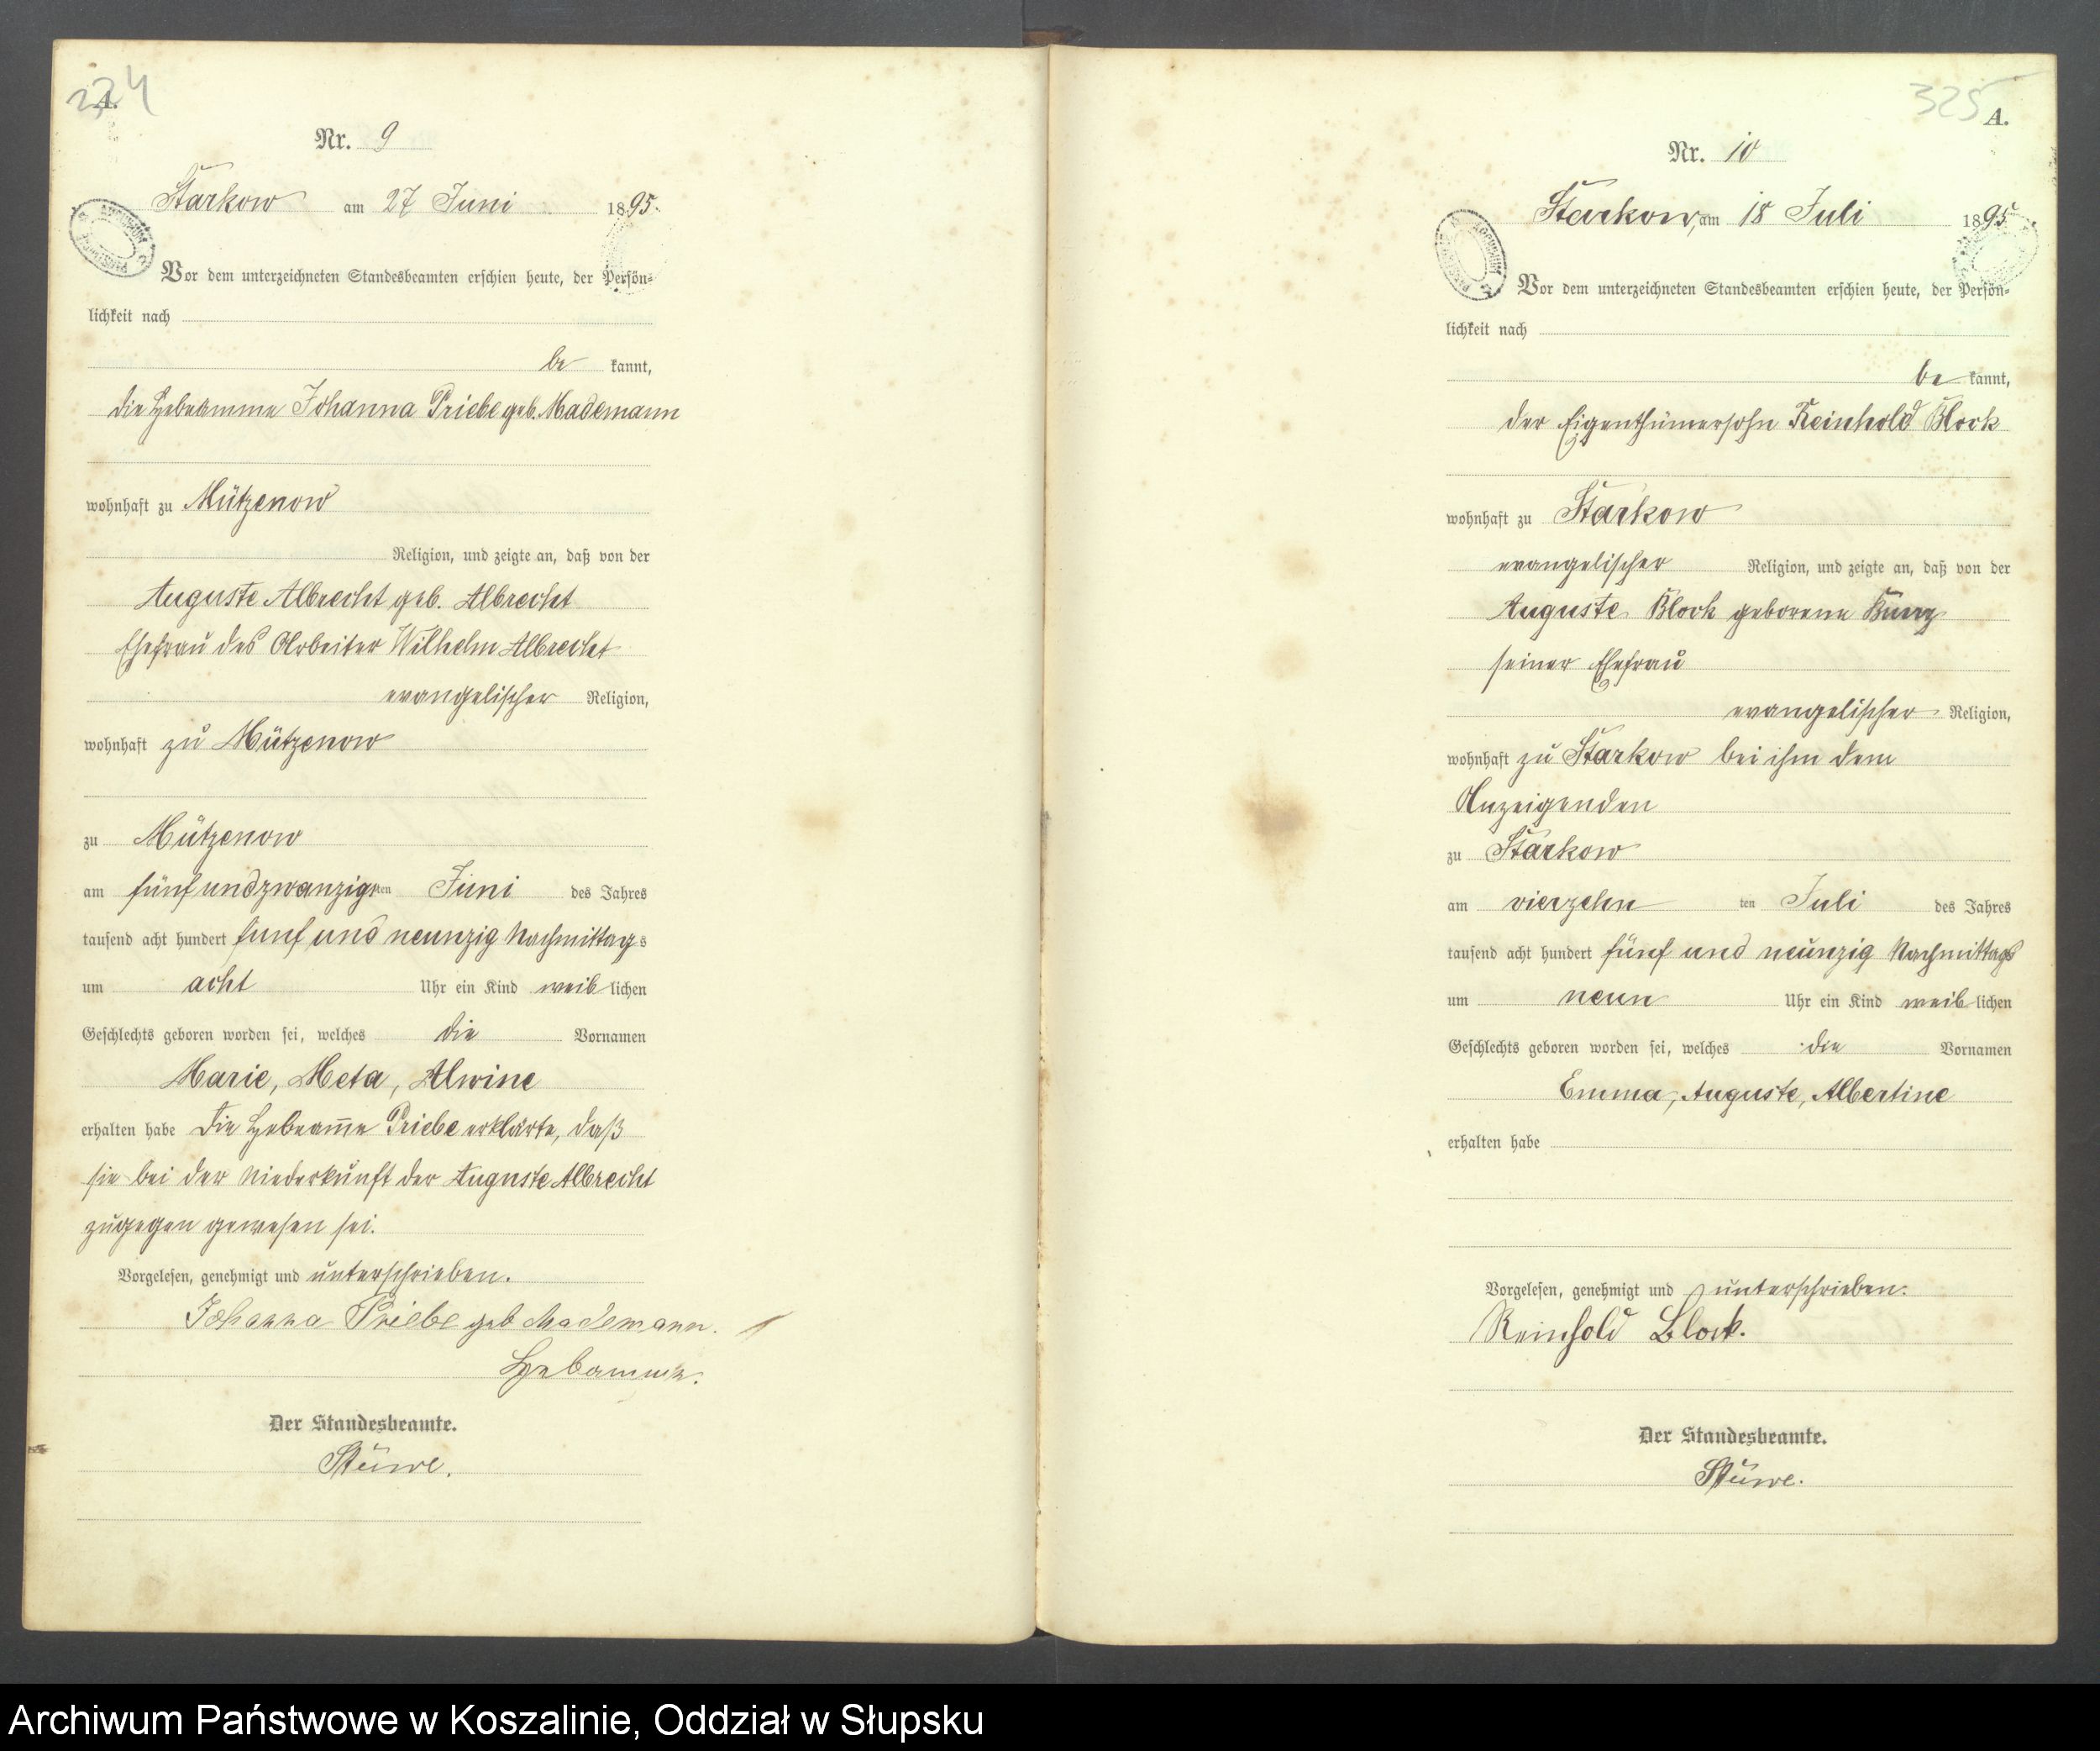 324
A.
Nr. 9
Starkow am 27 Juni 1895.
Vor dem unterzeichneten Standesbeamten erschien heute, der Persön-
lichkeit nach
be kannt,
die Hebeamme Johanna Priebe geb. Mademann
wohnhaft zu Mützenow
Religion, und zeigte an, daß von der
Auguste Albrecht geb. Albrecht
Ehefrau des Arbeiter Wilhelm Albrecht
evangelischer Religion,
wohnhaft zu Mützenow
zu Mützenow
am fünf und zwanzigsten Juni des Jahres
tausend acht hundert fünf und neunzig Nachmittags
um acht Uhr ein Kind weiblichen
Geschlechts geboren worden sei, welches die Vornamen
Marie, Meta, Alwine
erhalten habe Die Hebeam̅e Priebe erklärte, daß
sie bei der Niederkunft der Auguste Albrecht
zugegen gewesen sei.
Vorgelesen, genehmigt und unterschrieben.
Johanna Priebe geb Mademann.
Hebamme.
Der Standesbeamte.
Stüwe.
325
A.
Nr. 10
Starkow, am 18 Juli 1895
Vor dem unterzeichneten Standesbeamten erschien heute, der Persön-
lichkeit nach
be kannt,
der Eigenthümersohn Reinhold Block
wohnhaft zu Starkow
evangelischer Religion, und zeigte an, daß von der
Auguste Block geborene
seiner Ehefrau
evangelischer Religion,
wohnhaft zu Starkow bei ihm dem
Anzeigenden
zu Starkow
am vierzehn ten Juli des Jahres
tausend acht hundert fünf und neunzig Nachmittags
um neun Uhr ein Kind weiblichen
Geschlechts geboren worden sei, welches die Vornamen
Emma, Auguste, Albertine
erhalten habe
Vorgelesen, genehmigt und unterschrieben.
Reinhold Block.
Der Standesbeamte.
Stüwe.
Archiwum Państwowe w Koszalinie, Oddział w Słupsku